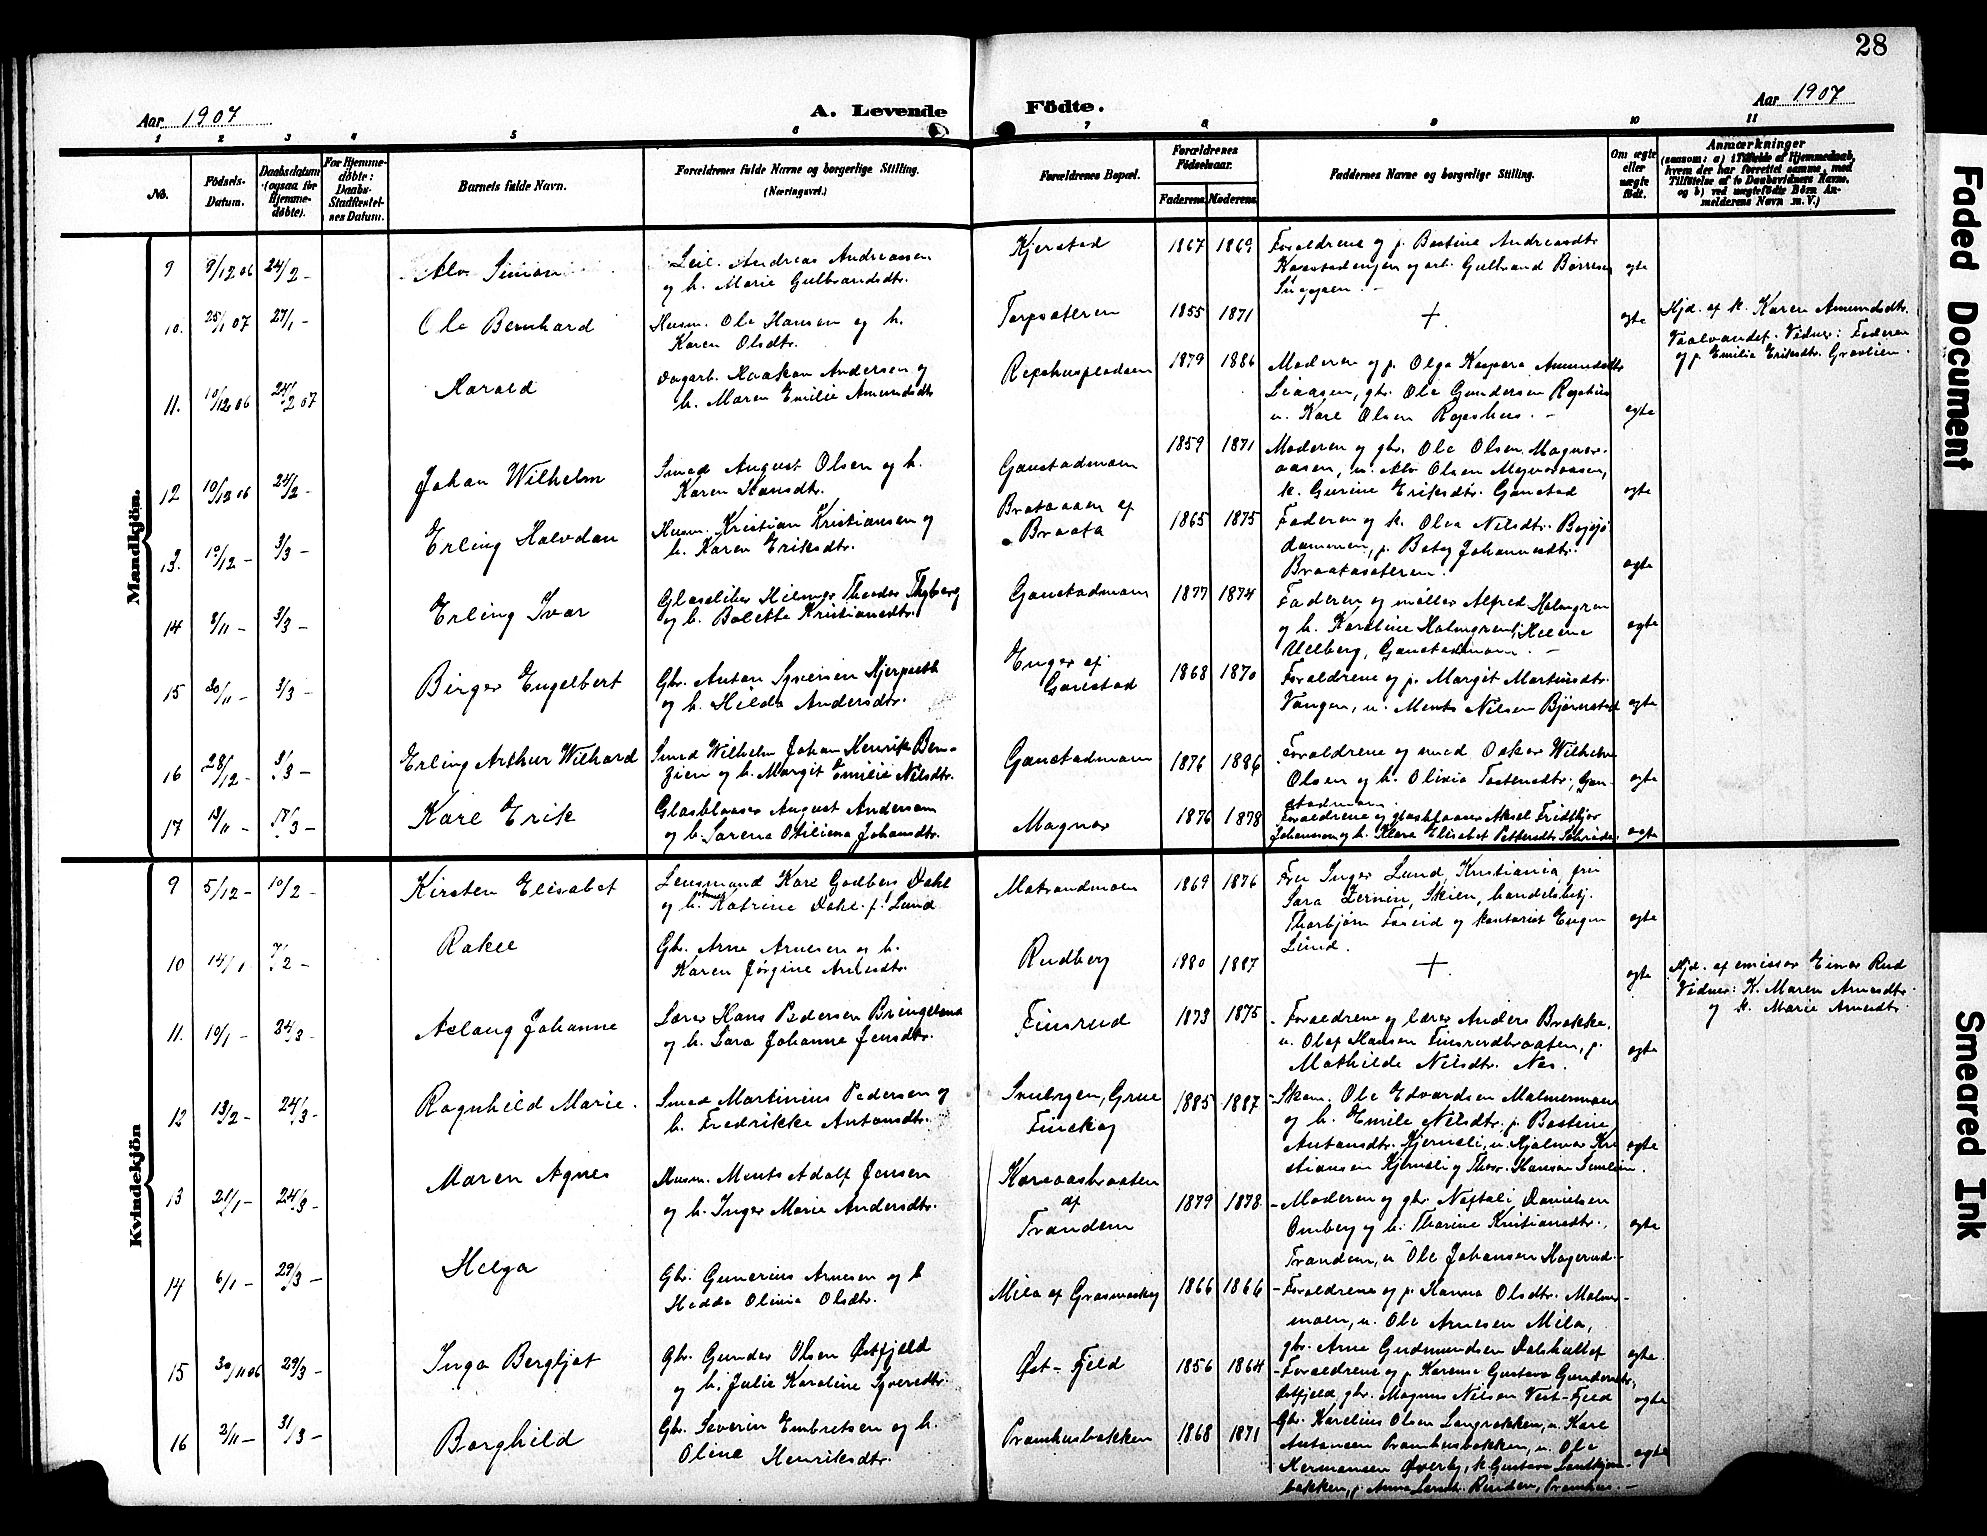 28
Aar 1907
A. Levende Födte.
Aar 1907
1 2 3 4 5 6 7 8 9 10 11
No.
Födsels-Datum.
Daabsdatum (ogsaa for Hjemme-döbte).
For Hjemme-döbte: Daabs-Stadfæstel-ses Datum.
Barnets fulde Navn.
Forældrenes fulde Navne og borgerlige Stilling. (Næringsvei.)
Forældrenes Bopæl.
Forældrenes Födselsaar.
Faderens. Moderens.
Faddernes Navne og borgerlige Stilling.
Om ægte eller uægte födt.
Anmærkninger
(saasom: a) i Tilfælde af Hjemmedaab, hvem der har forrettet samme, med Tilföielse af to Daabsvidners Navne, og b) ved uægtefödte Börn Anmelderens Navn m. V.)
Mandkjön.
9 9/12 06 24/2 - Alv Simon
Leil. Andreas Andreassen
og h. Marie Gulbrandsdtr.
Kjerstad 1867 1869
Forældrene og p. Bastine Andreasdtr.
og arb. Gulbrand Børresen
ægte
10. 25/1 07 27/1 - Ole Bernhard
Husm. Ole Hansen og h.
Karen Olsdtr.
Torpsæteren 1855 1871
+
ægte
Hjd. af k. Karen Amundsdtr.
Vaalvandet. Vidner: Faderen
og p. Emilie Eriksdtr. Graalien.
11. 10/12 06 24/2 07 Harald
Dagarb. Haakon Andersen og
h. Maren Emilie Amundsdtr.
Repshuspladsen 1879 1886
Moderen og p. Olga Kaspara Amundsdtr.
Liaasen, gbr. Ole Gundersen Repshus
u. Kare Olsen Repshus. -
ægte
12 10/12 06 24/2 - Johan Wilhelm
Smed August Olsen og h.
Karen Hansdtr.
Gaustadmoen 1859 1871
Moderen og gbr. Ole Olsen Magnor-
aasen, u. Alv Olsen
k. Gurine Eriksdtr. Gaustad
ægte
13. 10/12 - 3/3 - Erling Halvdan
Husm. Kristian Kristiansen og
h. Karen Eriksdtr.
Brataaen af
Braata
1865 1875
Faderen og k. Olea Nilsdtr. Bøgsjø
dammen, p. Betsy Johannesdtr.
Braatasæteren.
ægte
14 8/11 - 3/3 - Erling Ivar
Glassliber Hilmer Theodor Thyberg
og h. Bolette Kristiansdtr.
Gaustadmoen 1877 1874
Faderen og møller Alfred Holmgren
og h. Karoline Holmgren, Helene
Uelberg, Gaustadmoen. -
ægte
15 30/11 - 3/3 - Birger Engelbert
Gbr. Anton Syversen Hjerpseth
og h. Hilda Andersdtr.
Enger af
Gaustad
1868 1870
Forældrene og p. Margit Martinsdtr.
Vangen, u. Ments Nilsen Bjørnstad
ægte
16 28/12 - 3/3 - Erling Arthur Wilhard
Smed Wilhelm Johan Henrik Ben-
zien og h. Margit Emilie Nilsdtr.
Gaustadmoen 1876 1886
Forældrene og smed Oskar Wilhelm
Olsen og h. Olivia Tostensdtr., Gau-
stadmoen.
ægte
17 13/11 - 17/3 - Kare Erik
Glasblaaser August Anderson
og h. Sorena Otiliena Johansdtr.
Magnor 1876 1878
Forældrene og glasblaaser Aksel Fridtjov
Johansson og h. Klara Elisabet Pettersdtr.
ægte
Kvindekjön
9 5/12 - 10/2 - Kirsten Elisabet
Lensmand Kare Godberg Dahl
og h. Katrine Dahl f. Lund
Matrandmoen 1869 1876
Fru Inger Lund, Kristiania, frk
Sara Zernin, Skien, handelsbetj.
Thorbjørn Foseid og kontorist Eugen
Lund.
ægte
10 14/1 7/2 - Rakel
Gbr. Arne Arnesen og h.
Karen Jørgine Arnesdtr.
Rudberg 1880 1887
+
ægte
Hjd. af emissær Einar Rud
Vidner: K. Maren Arnesdtr.
og k. Marie Arnesdtr.
11. 10/1 - 24/3 - Aslaug Johanne
Lærer Hans Pedersen Bringelsrud
og h. Sara Johanne Jensdtr.
Finsrud 1873 1875
- Forældrene og lærer Anders Brakke,
u. Olaf Hansen Finsrudbraaten, p.
Mathilde Nilsdtr. Nes.
ægte
12 13/2 - 24/3 - Ragnhild Marie.
Smed Martinius Pedersen og
h. Fredrikke Antonsdtr.
Grue
Finskog
1885 1887
- Skom. Ole Edvardsen Malmermoen
og h. Emile Nilsdtr. p. Bastine
Antonsdtr. Kjerneli, u. Hjalmar Kri
stiansen Kjerneli og Thor Hansen
ægte
13 21/1 - 24/3 - Maren Agnes
Husm. Ments Adolf Jensen
og h. Inger Marie Andersdtr.
Koraasbraaten
af
Trandem
1879 1878
- Moderen og gbr. Naftali Danielsen
Omberg og h. Thorine Kristiansdtr.,
Trandem, u. Ole Johansen Hagerud.
ægte
14 6/1 - 29/3 - Helga
Gbr. Gunerius Arnesen og h
Hedda Olivia Olsdtr.
Mila af Grasmoskog 1866 1866
- Forældrene og p. Hanna Olsdtr. Malmer-
moen, u. Ole Arnesen Mila,
gbr. Arne Gudmundsen Dalskallet
ægte.
15 30/11 06 29/3 - Inga Bergljot
Gbr. Gunder Olsen Østfjeld
og h. Julie Karoline Syversdtr.
Øst-Fjeld 1856 1864
- Forældrene og p. Karense Gustava Gundersdtr.,
Østfjeld, gbr. Magnus Nilsen Vest-Fjeld
ægte
16 2/11 - 31/3 - Borghild
Gbr. Severin Embretsen og h.
Oline Henriksdtr.
Pramhusbakken 1868 1871
Gbr. Karelius Olsen Langbakken, u. Kare
Antonsen Pramhusbakken, u. Ole
Hermansen Øverby, k. Gustava
bakken, p. Anna Rundon, Pramhus. -
ægte
Faded Document
Smeared Ink